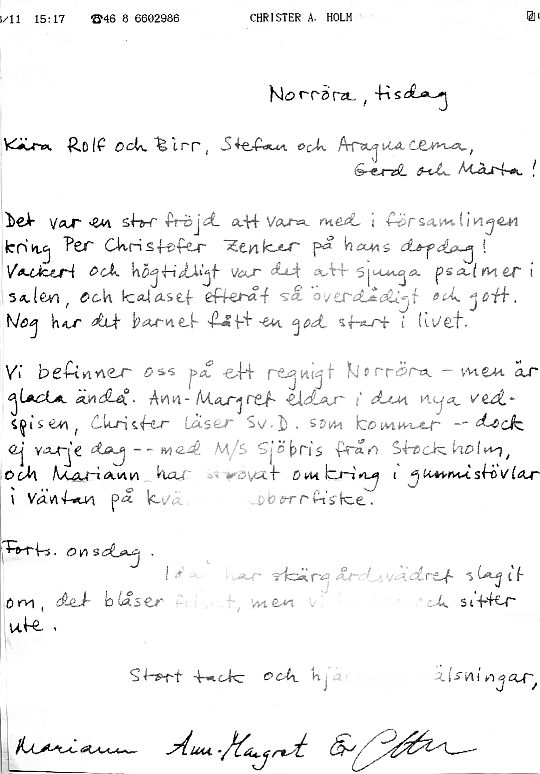 /11 15:17 ☎46 8 6602986 CHRISTER A. HOLM
Norröra, tisdag
Kära Rolf och Birr, Stefan och Araguacema,
Gerd och Märta!
Det var en stor fröjd att vara med i församlingen
kring Per Christofer Zenker på hans dopdag!
Vackert och högtidligt var det att sjunga psalmer i
salen, och kalaset efteråt så överdådigt och gott.
Nog har det barnet fått en god start i livet.
Vi befinner oss på ett regnigt Norröra – men är
glada ändå. Ann-Margret eldar i den nya ved-
spisen, Christer läser Sv.D. som kommer -- dock
ej varje dag -- med M/S Sjöbris från Stockholm,
och Mariann har omkring i gummistövlar
i väntan på
Forts. onsdag.
har skärgårdsvädret slagit
om, det blåser men och sitter
ute.
Stort tack och
Mariann Ann-Margret